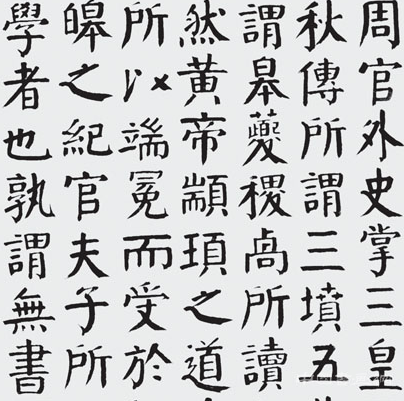 周官外史掌三皇
秋傳所謂三墳五
謂皋夔稷卨所讀
然黃帝顓頊之道
所以端冕而受於
皞之紀官夫子所
學者也孰謂無書